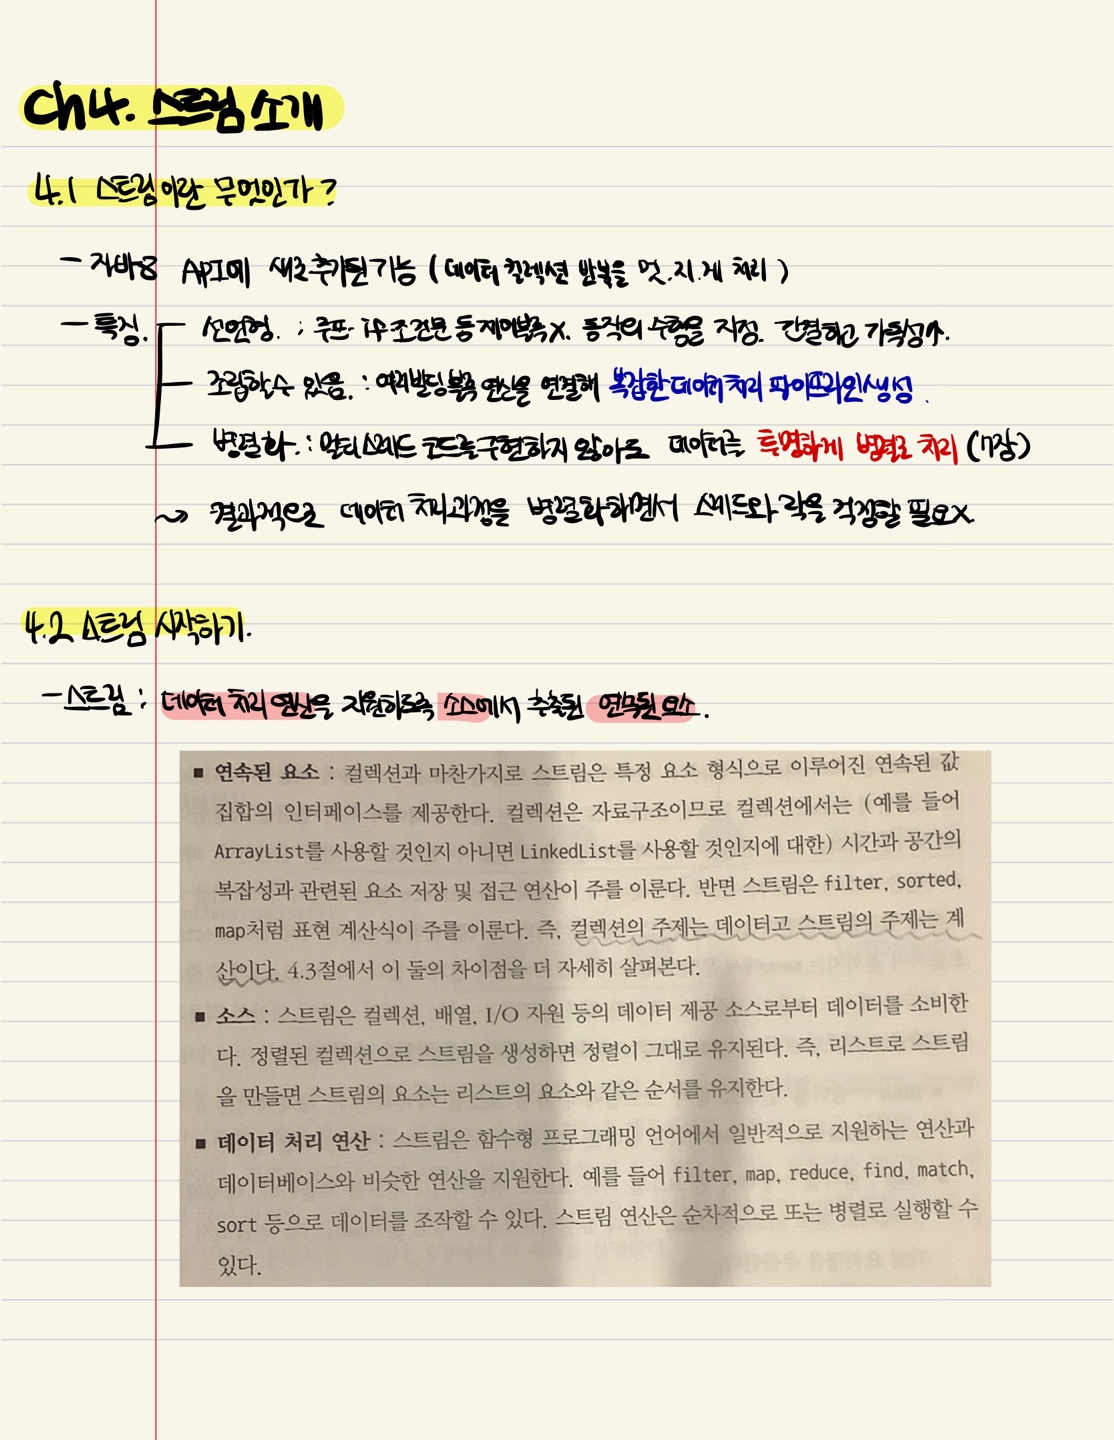 Ch4. 스트림 소개
4.1 스트림이란 무엇인가?
- 자바8 API에 새로 추가된 기능 (데이터 컬렉션 반복을 멋.지.게 처리)
- 특징. 선언형. : 루프·if 조건문 등 제어블록 X. 동작의 수행을 지정. 간결하고 가독성↑.
조립할 수 있음. : 여러 빌딩 블록 연산을 연결해 복잡한 데이터 처리 파이프라인 생성.
병렬화. : 멀티스레드 코드를 구현하지 않아도 데이터를 투명하게 병렬로 처리 (7장)
~> 결과적으로 데이터 처리과정을 병렬화하면서 스레드와 락을 걱정할 필요X.
4.2 스트림 시작하기.
- 스트림 : 데이터 처리 연산을 지원하도록 소스에서 추출된 연속된 요소.
■ 연속된 요소 : 컬렉션과 마찬가지로 스트림은 특정 요소 형식으로 이루어진 연속된 값
집합의 인터페이스를 제공한다. 컬렉션은 자료구조이므로 컬렉션에서는 (예를 들어
ArrayList를 사용할 것인지 아니면 LinkedList를 사용할 것인지에 대한) 시간과 공간의
복잡성과 관련된 요소 저장 및 접근 연산이 주를 이룬다. 반면 스트림은 filter, sorted,
map처럼 표현 계산식이 주를 이룬다. 즉, 컬렉션의 주제는 데이터고 스트림의 주제는 계
산이다. 4.3절에서 이 둘의 차이점을 더 자세히 살펴본다.
■ 소스 : 스트림은 컬렉션, 배열, I/O 자원 등의 데이터 제공 소스로부터 데이터를 소비한
다. 정렬된 컬렉션으로 스트림을 생성하면 정렬이 그대로 유지된다. 즉, 리스트로 스트림
을 만들면 스트림의 요소는 리스트의 요소와 같은 순서를 유지한다.
■ 데이터 처리 연산 : 스트림은 함수형 프로그래밍 언어에서 일반적으로 지원하는 연산과
데이터베이스와 비슷한 연산을 지원한다. 예를 들어 filter, map, reduce, find, match,
sort 등으로 데이터를 조작할 수 있다. 스트림 연산은 순차적으로 또는 병렬로 실행할 수
있다.